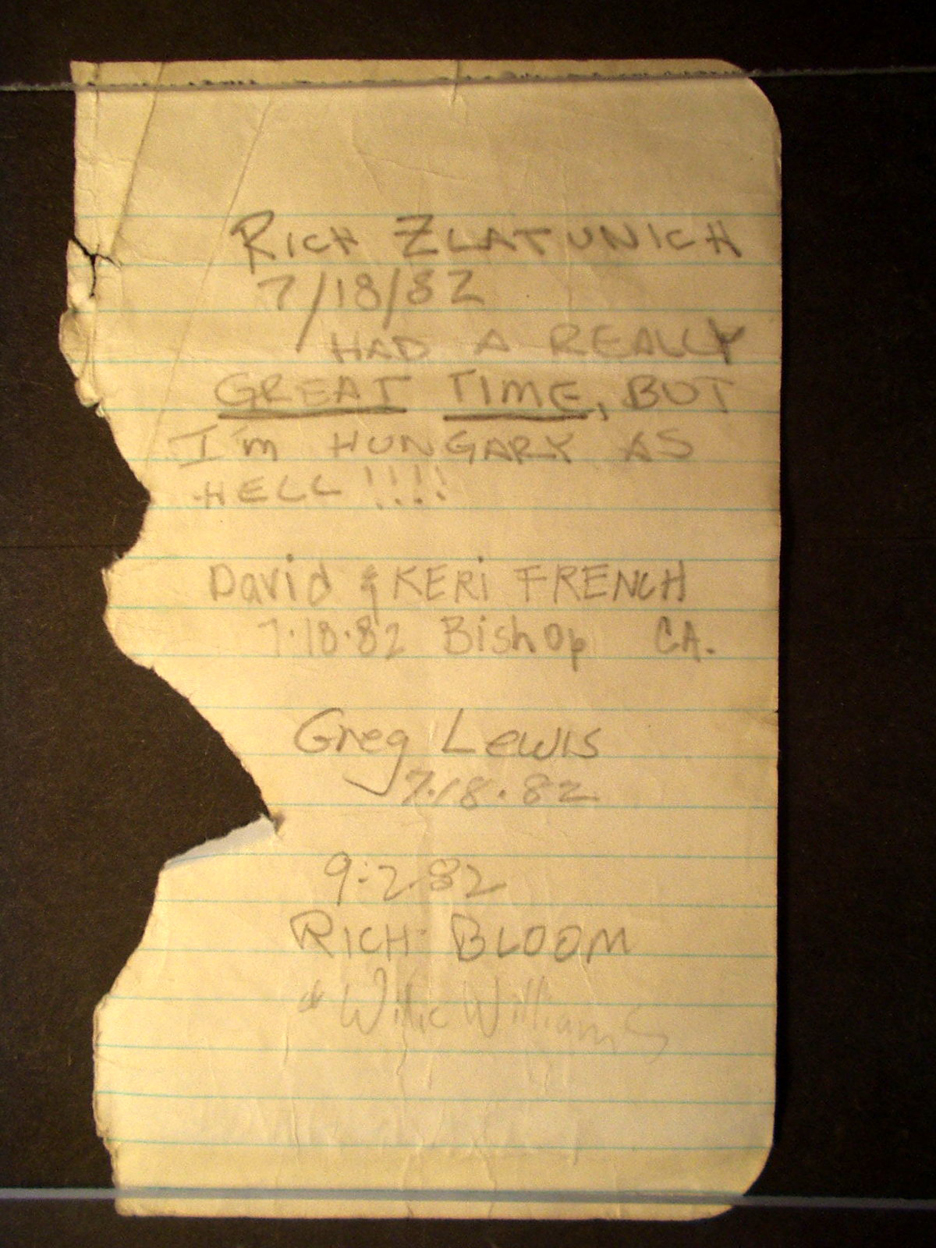 RICH ZLATUNICH
7/18/82
HAD A REALLY
GREAT TIME, BUT
I'm HUNGARY AS
HELL!!!!
David & KERi FRENCH
7·18·82 BishOp CA.
Greg Lewis
7·18·82
9·2·82
RICH BLOOM
& Willie Williams